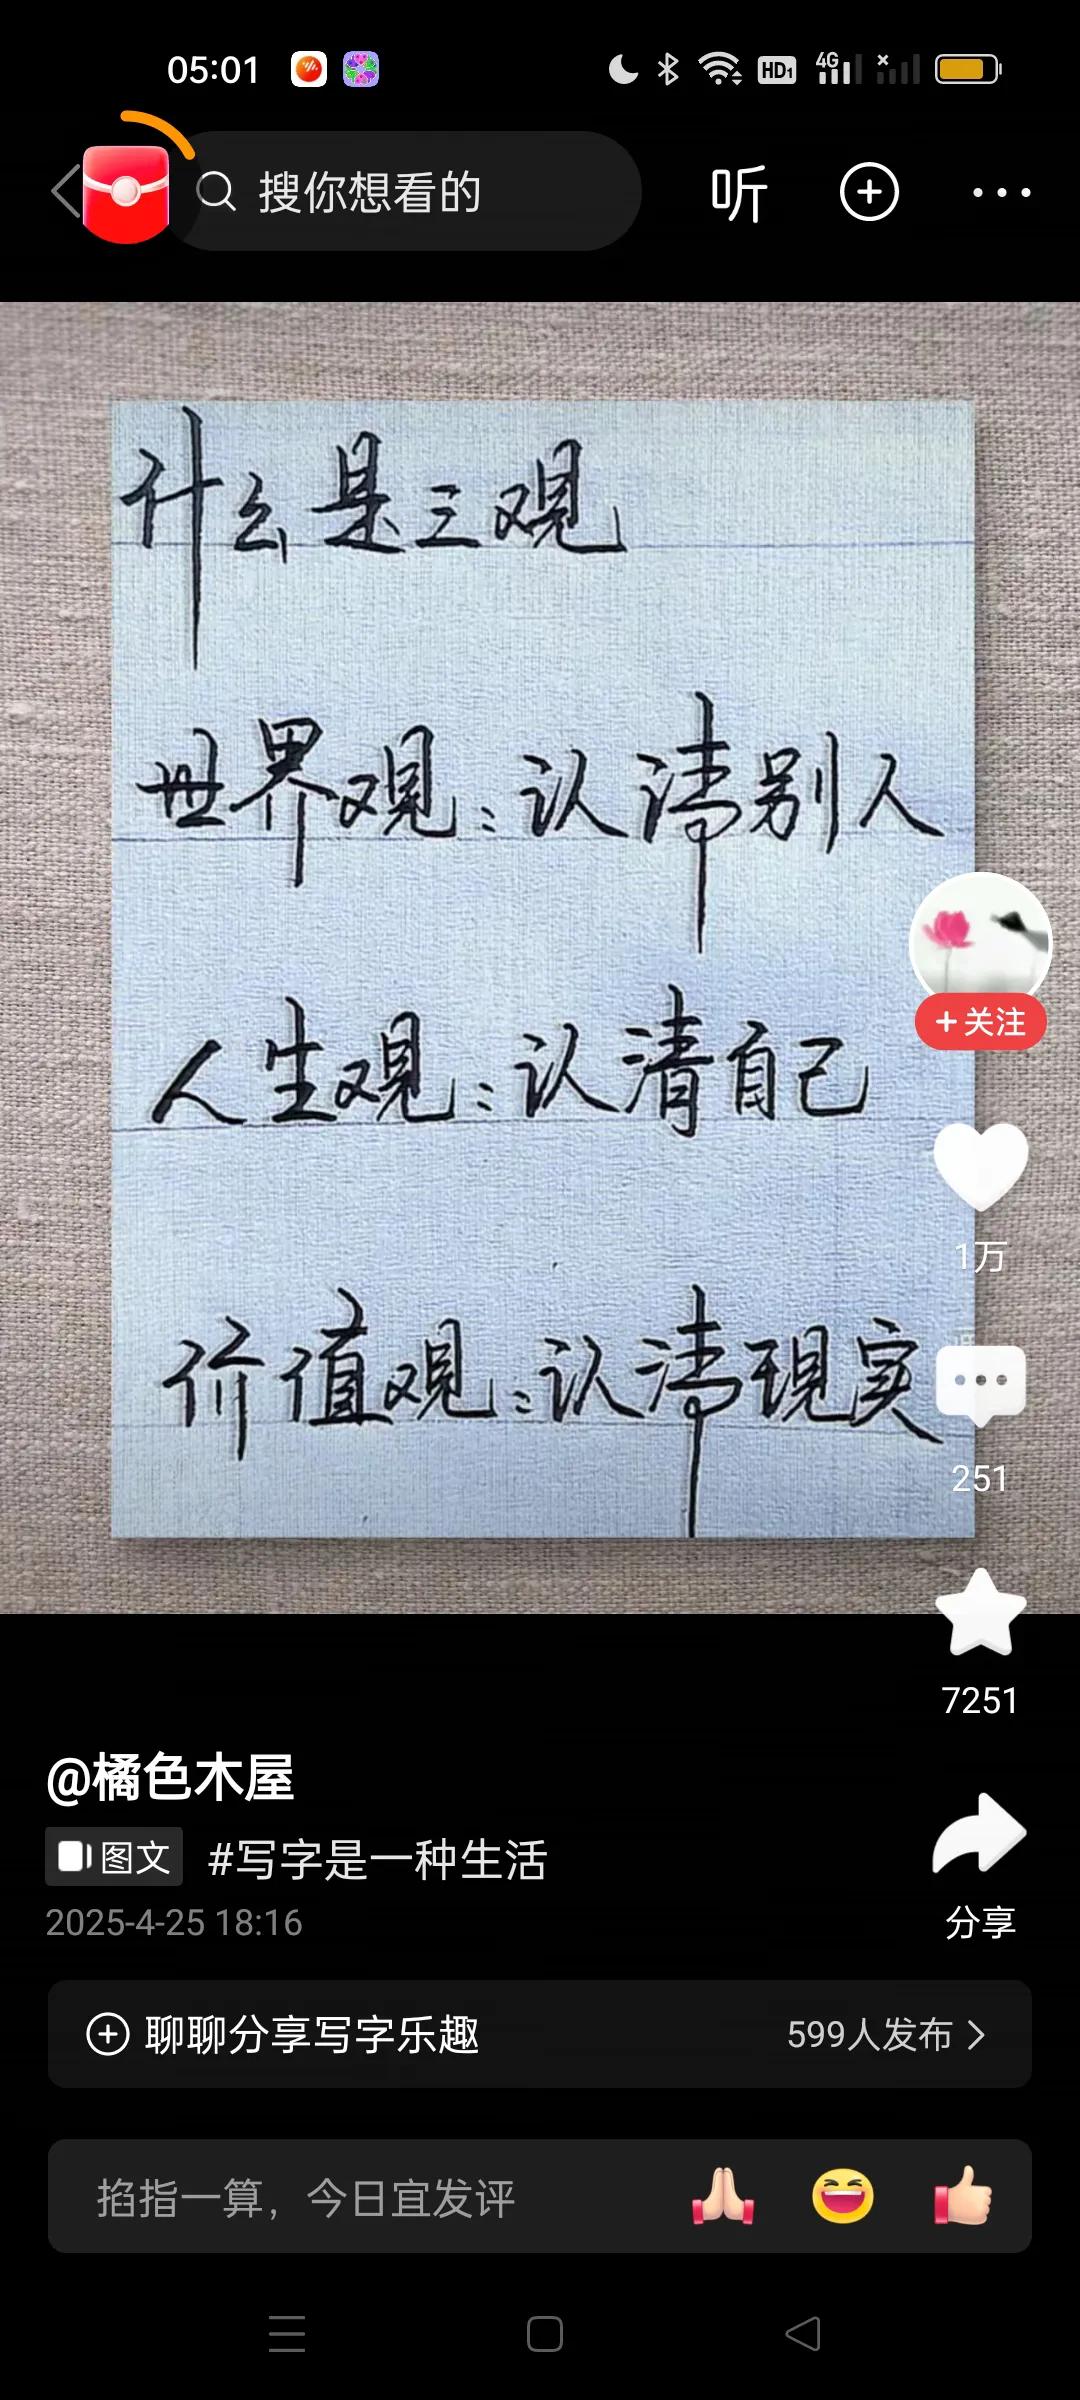 05:01
HD1 4G
搜你想看的
听
什么是三观
世界观:认清别人
人生观:认清自己
价值观:认清现实
+关注
1万
251
7251
分享
@橘色木屋
图文 #写字是一种生活
2025-4-25 18:16
聊聊分享写字乐趣 599人发布
掐指一算，今日宜发评